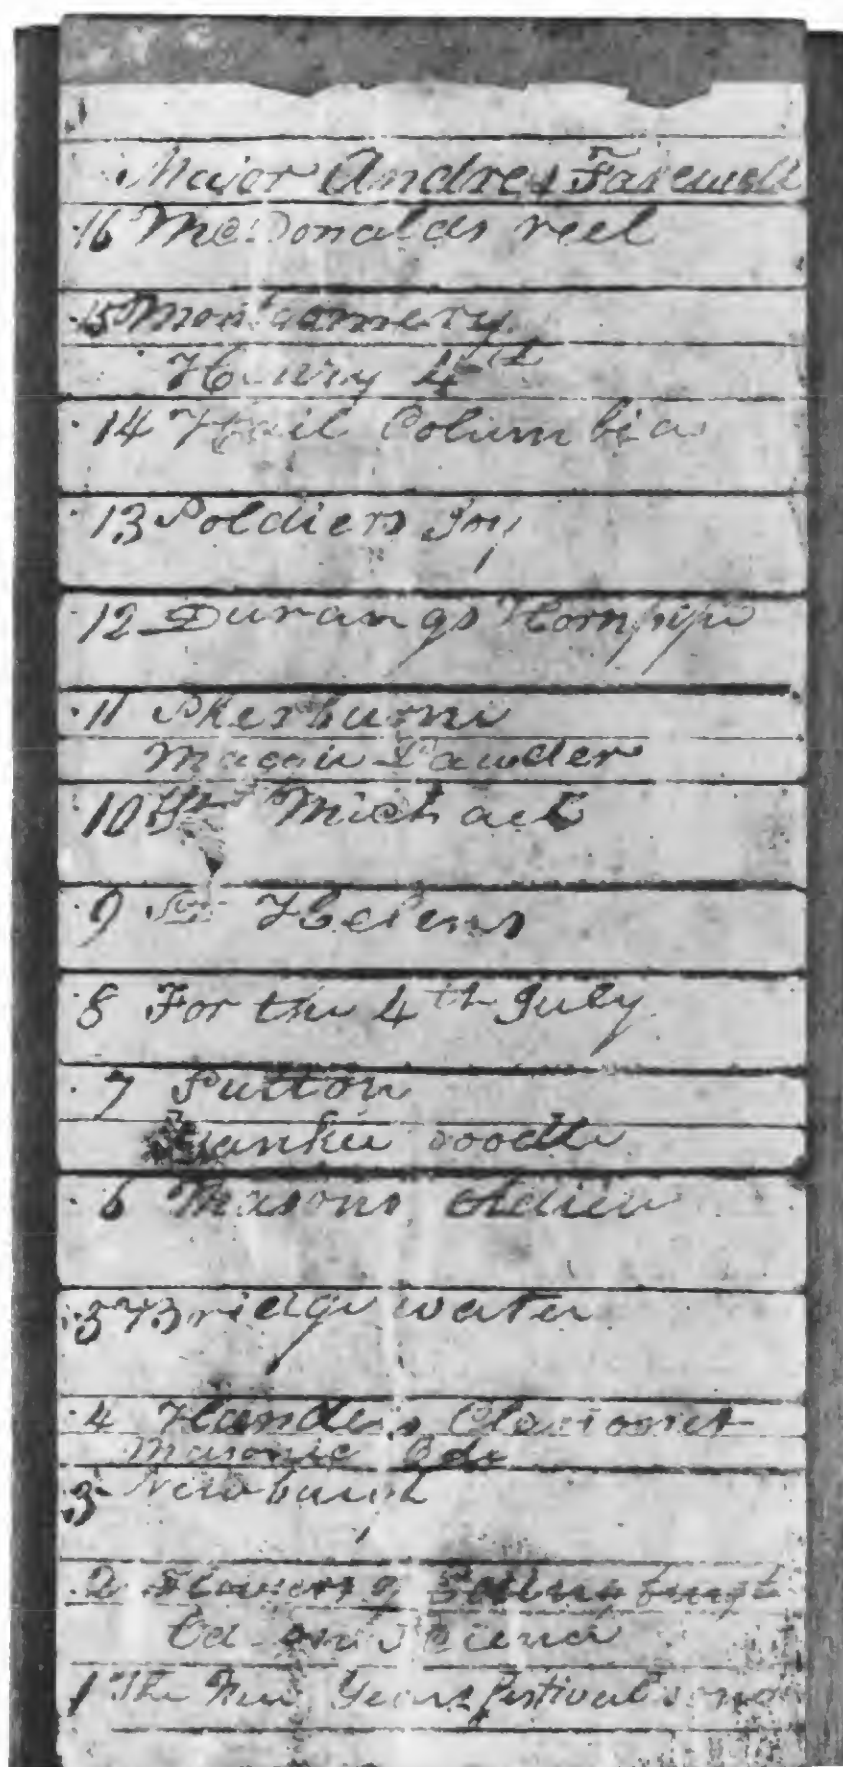 Major Andres Farewell
16 McDonalds reel
15 Montgomery
Henry 4th
14 Hail Columbia
13 Soldiers Joy
12 Durangs Hornpipe
11 Sherburne
Maggie Lawder
10 St Michael
9 St Helens
8 For the 4th July
7 Sutton
Yankee doodle
6 Masons Adieu
5 Bridgewater
4 Handels Clarionet
Masonic Ode
3 Newburgh
2 Flowers of Edinaburgh
Od on Science
1 The New Years festival song